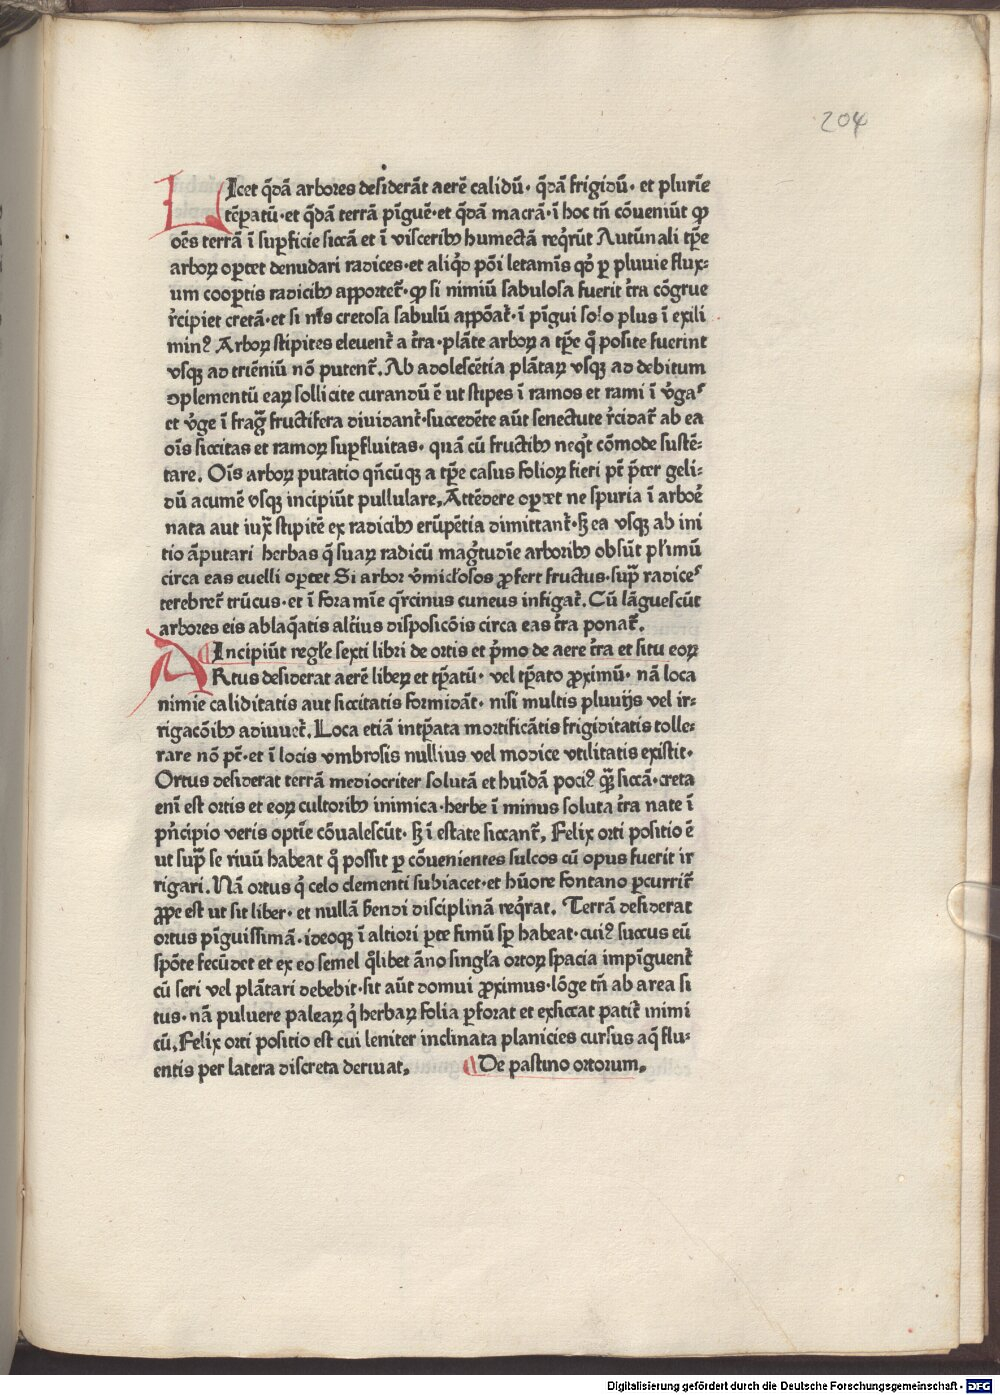 204
LIcet q̄dā arbores desiderāt aerē calidū· q̄dā frigidū· et plurīe
tēꝑatū·et q̄dā terrā pīguē·et q̄dā macrā·ī hoc tn̄ cōveniūt ꝙ
oēs terrā ī suꝑficie siccā et ī visceribꝫ humectā reqͥrūt Autūnali tꝑe
arboꝝ oꝑtet denudari radices·et aliqͥd pōi letamīs qd̓ ꝑ pluuie flux⸗
um cooꝑtis radicibꝫ apportet̄·ꝙ si nimiū sabulosa fuerit t̄ra cōgrue
r̄cipiet cretā·et si nīs cretosa sabulū appōat̄·ī pīgui solo plus ī exili
min⁹ Arboꝝ stipites eleuent̄ a t̄ra·plāte arboꝝ a tꝑe q̄ posite fuerint
vsqꝫ ad triēniū nō putent̄. Ab adolescētia plātaꝝ vsqꝫ ad debitum
ↄplementū eaꝝ sollicite curandū ē ut stipes ī ramos et rami ī v̓gas
et v̓ge ī frag̓ fructifera diuidant̄·succedēte aūt senectute r̄cidat̄ ab ea
oīs siccitas et ramoꝝ suꝑfluitas· quā cū fructibꝫ neqͥt cōmode sustē⸗
tare. Oīs arboꝝ putatio qn̄cūqꝫ a tꝑe casus folioꝝ fieri pt̄ p̄ter geli⸗
dū acumē vsqꝫ incipiūt pullulare, Attēdere oꝑtet ne spuria ī arboē
nata aut iux̄ stipitē ex radicibꝫ erūpētia dimittant̄·sꝫ ea vsqꝫ ab ini
tio āputari herbas q̄ suaꝝ radicū mag̓tudīe arboribꝫ obsūt pl̓imū
circa eas euelli oꝑtet Si arbor v̓micl̓osos ꝓfert fructus·suꝑ radices
terebret̄ trūcus·et ī foramīe qͥrcinus cuneus infigat̄. Cū lāguescūt
arbores eis ablaq̄atis alt̓ius disposicōis circa eas t̄ra ponat̄.
¶Incipiūt regl̓e sexti libri de ortis et pͥmo de aere t̄ra et situ eoꝝ
ORtus desiderat aerē libeꝝ et tꝑatū· vel tꝑato ꝓximū· nā loca
nimie caliditatis aut siccitatis formidāt· nisi multis pluuijs vel ir⸗
rigacōibꝫ adiuuet̄. Loca etiā intꝑata mortificātis frigiditatis tolle⸗
rare nō pt̄·et ī locis vmbrosis nullius vel modice vtilitatis existit·
Ortus desiderat terrā mediocriter solutā et hūidā poci⁹ qꝫ̄ siccā·creta
eni est ortis et eoꝝ cultoribꝫ inimica·herbe ī minus soluta t̄ra nate ī
pͥncipio veris optīe cōualescūt· sꝫ ī estate siccant̄, Felix orti positio ē
ut suꝑ se riuū habeat qͦ possit ꝑ cōuenientes sulcos cū opus fuerit ir
rigari. Nā ortus qͥ celo clementi subiacet·et hūore fontano ꝑcurrit̄
ꝓpe est ut sit liber· et nullā b̓endi disciplinā reqͥrat. Terrā desiderat
ortus pīguissimā·ideoqꝫ ī altiori ꝑte fimū sꝑ habeat·cui⁹ succus eū
spōte fecūdet et ex eo semel qͦlibet āno singl̓a ortoꝝ spacia impīguent̄
cū seri vel plātari debebit·sit aūt domui ꝓximus·lōge tn̄ ab area si
tus· nā puluere paleaꝝ qͥ herbaꝝ folia ꝑforat et exsiccat patit̄ inimi
cū, Felix orti positio est cui leniter inclinata planicies cursus aq̄ flu⸗
entis per latera discreta deriuat, ¶De pastino ortorum,
Digitalisierung gefördert durch die Deutsche Forschungsgemeinschaft · DFG